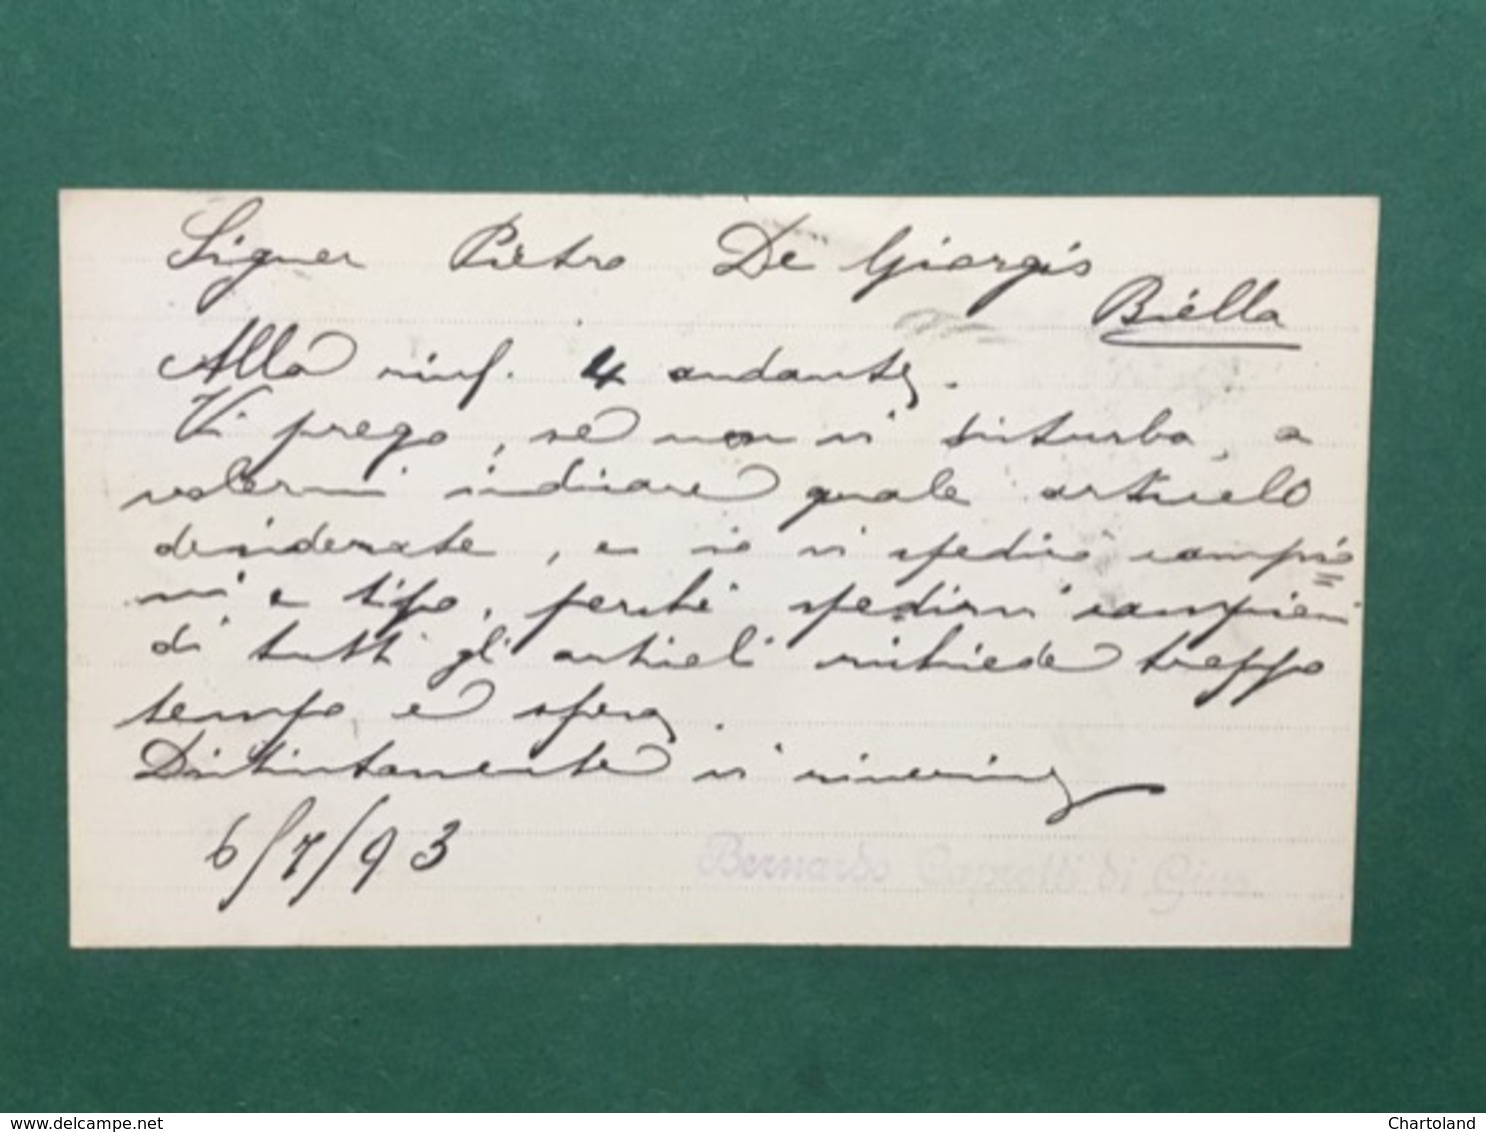 Signor Pietro De Giorgis
Biella
Alla 4 andante.
Vi prego, se non vi disturba, a
volermi indicare quale articolo
desiderate, e io vi spedirò campio
ni e tipo, perché spedirvi campioni
di tutti gli articoli richiede troppo
tempo e spesa.
Distintamente vi
6/7/93
Bernardo Caprotti di Gius.
www.delcampe.net
Chartoland